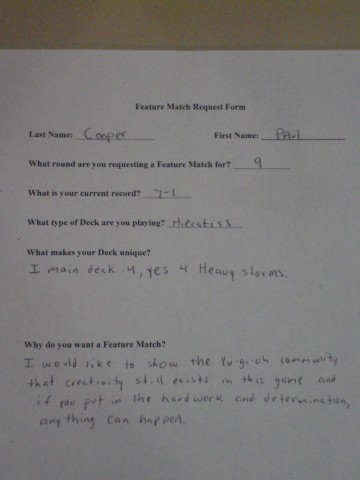 Feature Match Request Form
Last Name: Cooper First Name: Paul
What round are you requesting a Feature Match for? 9
What is your current record? 7-1
What type of Deck are you playing? Hieratics
What makes your Deck unique?
I main deck 4, yes 4 Heavy storms.
Why do you want a Feature Match?
I would like to show the Yu-gi-oh community
that creativity still exists in this game and
if you put in the hardwork and determination,
anything can happen.